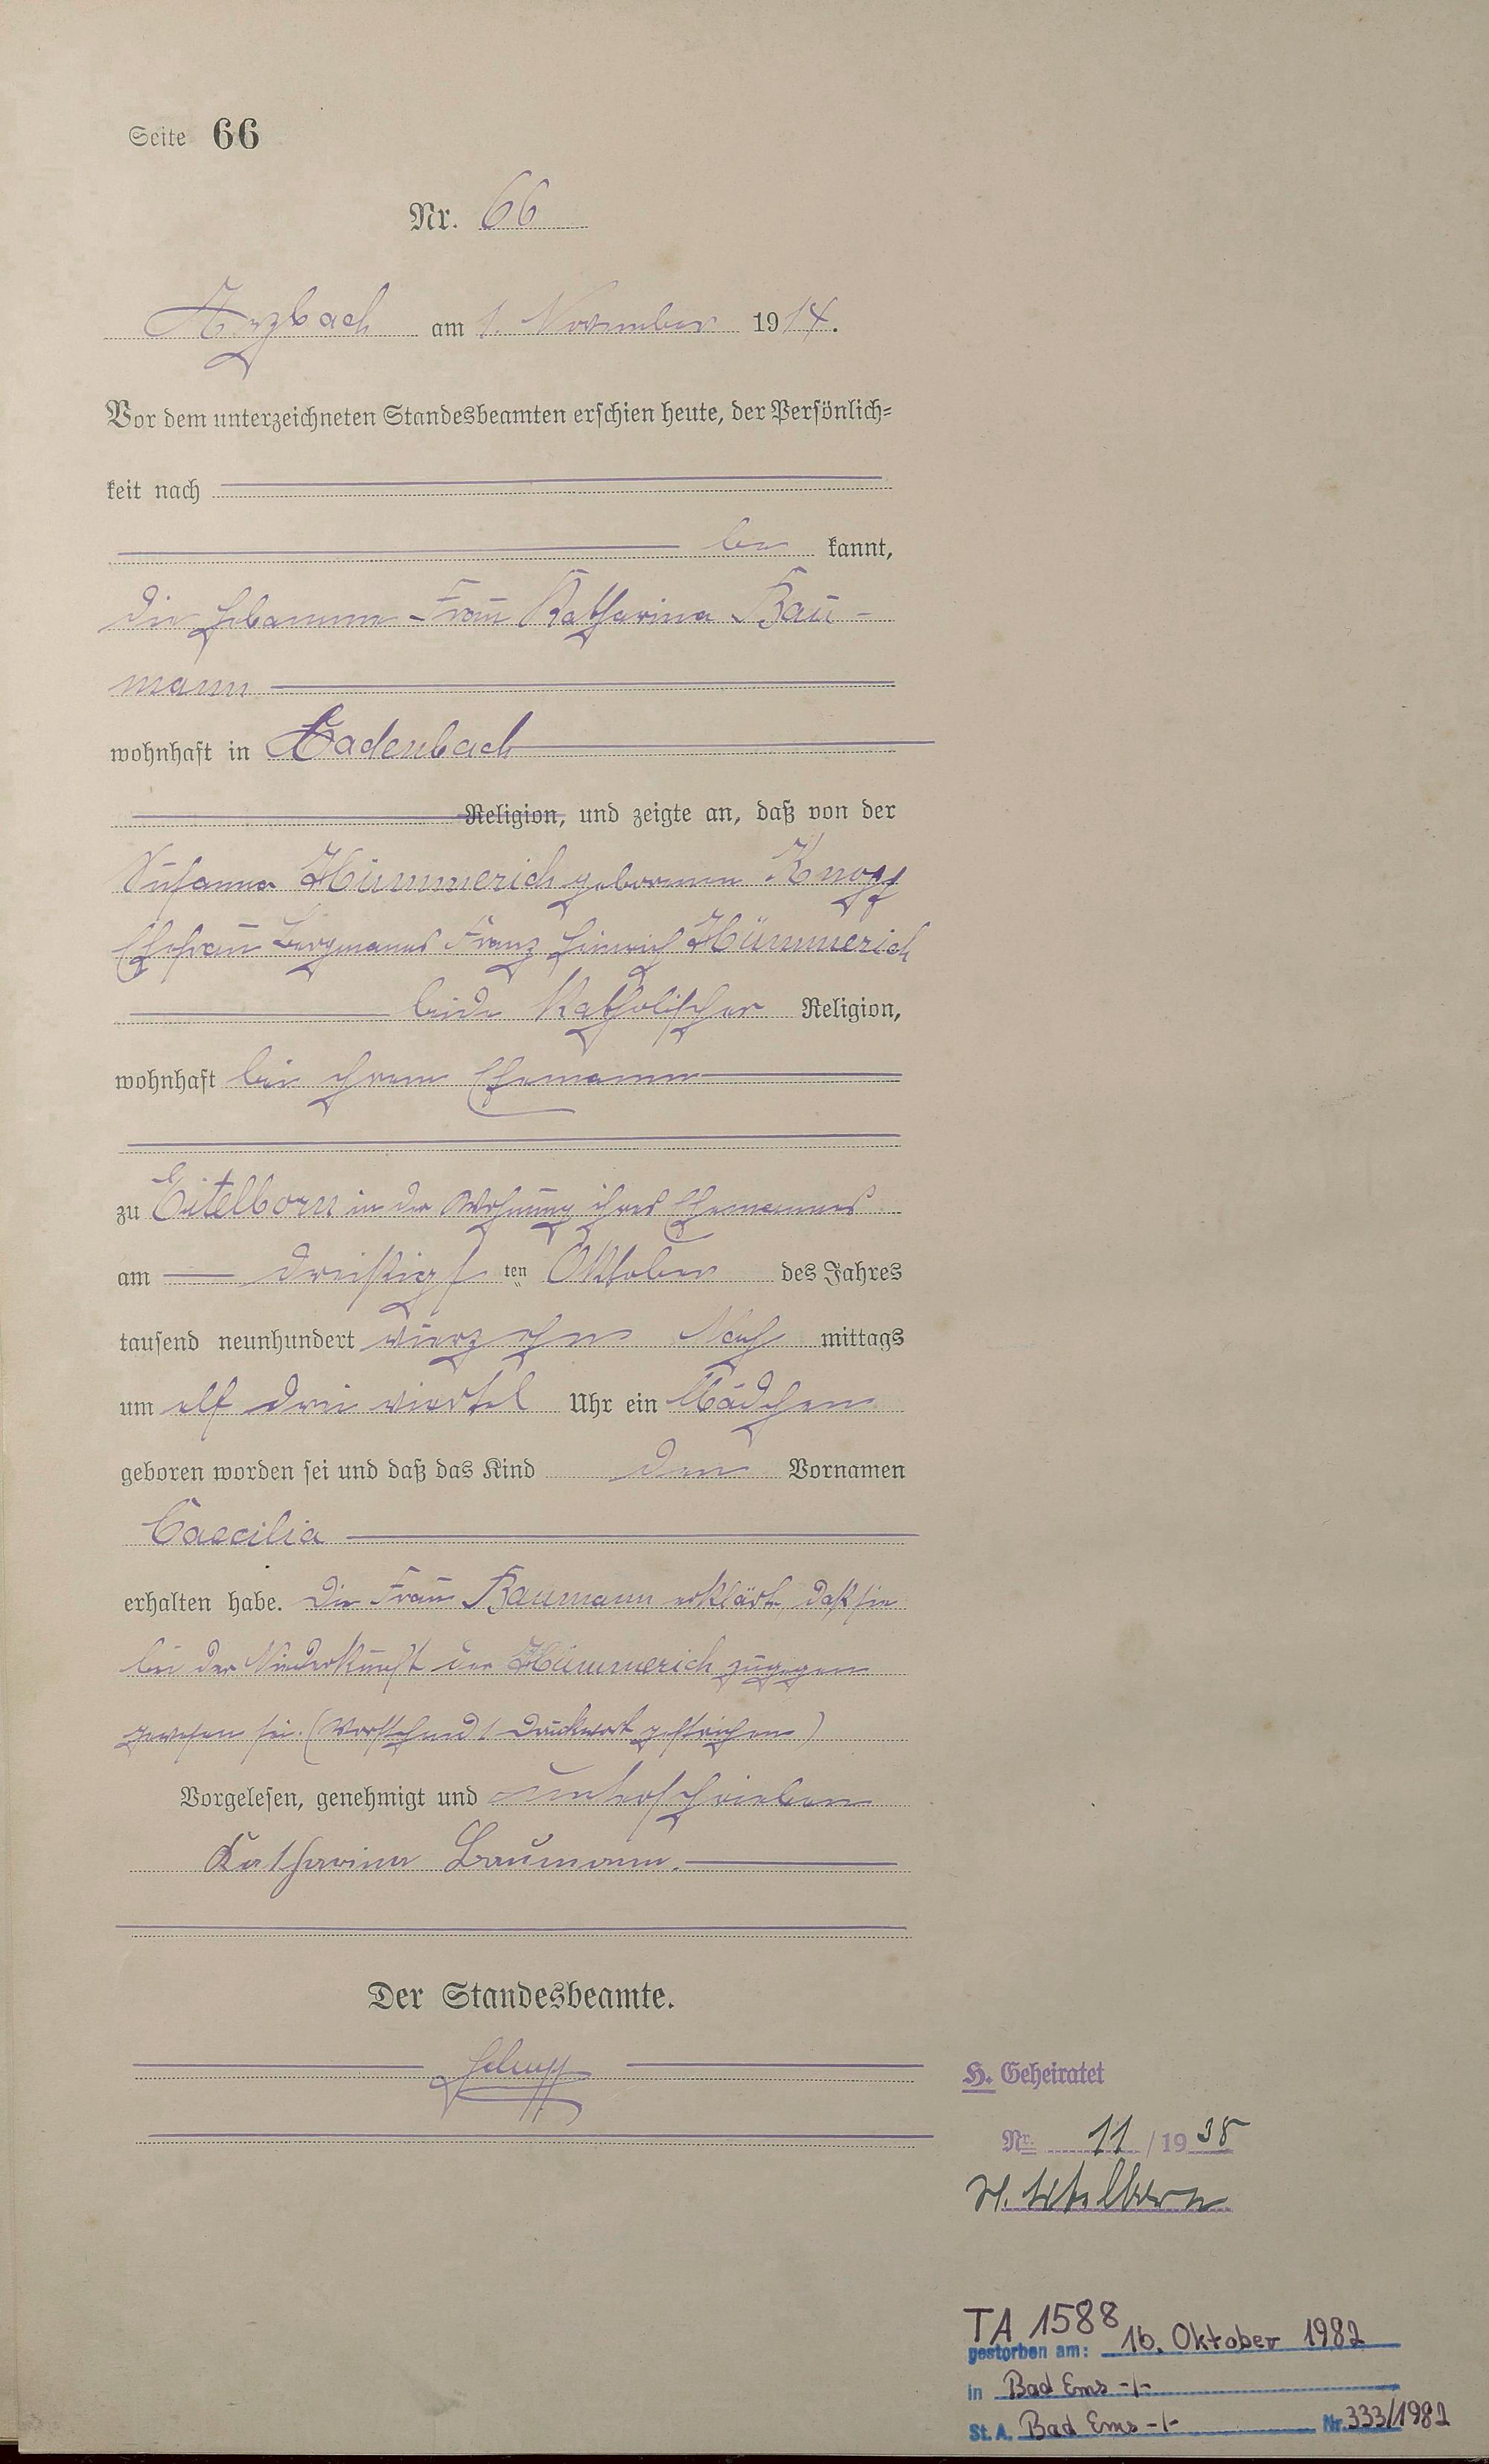 Seite 66
Nr. 66
Arzbach am 1. November 1914.
Vor dem unterzeichneten Standesbeamten erschien heute, der Persönlich-
keit nach
be kannt,
die Hebamme Frau Katharina Bau-
mann
wohnhaft in Cadenbach
Religion, und zeigte an, daß von der
Susanna Hümmerich geborenen Knopp
Ehefrau Bergmanns Franz Heinrich Hümmerich
beide katholischer Religion,
wohnhaft bei ihrem Ehemann
zu Eitelborn in der Wohnung ihres Ehemannes
am dreißigsten Oktober des Jahres
tausend neunhundert vierzehn Nach mittags
um elf drei viertel Uhr ein Mädchen
geboren worden sei und daß das Kind den Vornamen
Caecilia
erhalten habe. Die Frau Baumann erklärte, daß sie
bei der Niederkunft der Hümmerich zugegen
gewesen sei. (Vorstehend 1 Druckwort gestrichen)
Vorgelesen, genehmigt und unterschrieben
Katharina Baumann.
Der Standesbeamte.
H. Geheiratet
Nr. 11/1938
Eitelborn
TA 1588
gestorben am: 16. Oktober 1982
in Bad Ems -/-
St. A. Bad Ems -/- Nr. 333/1982